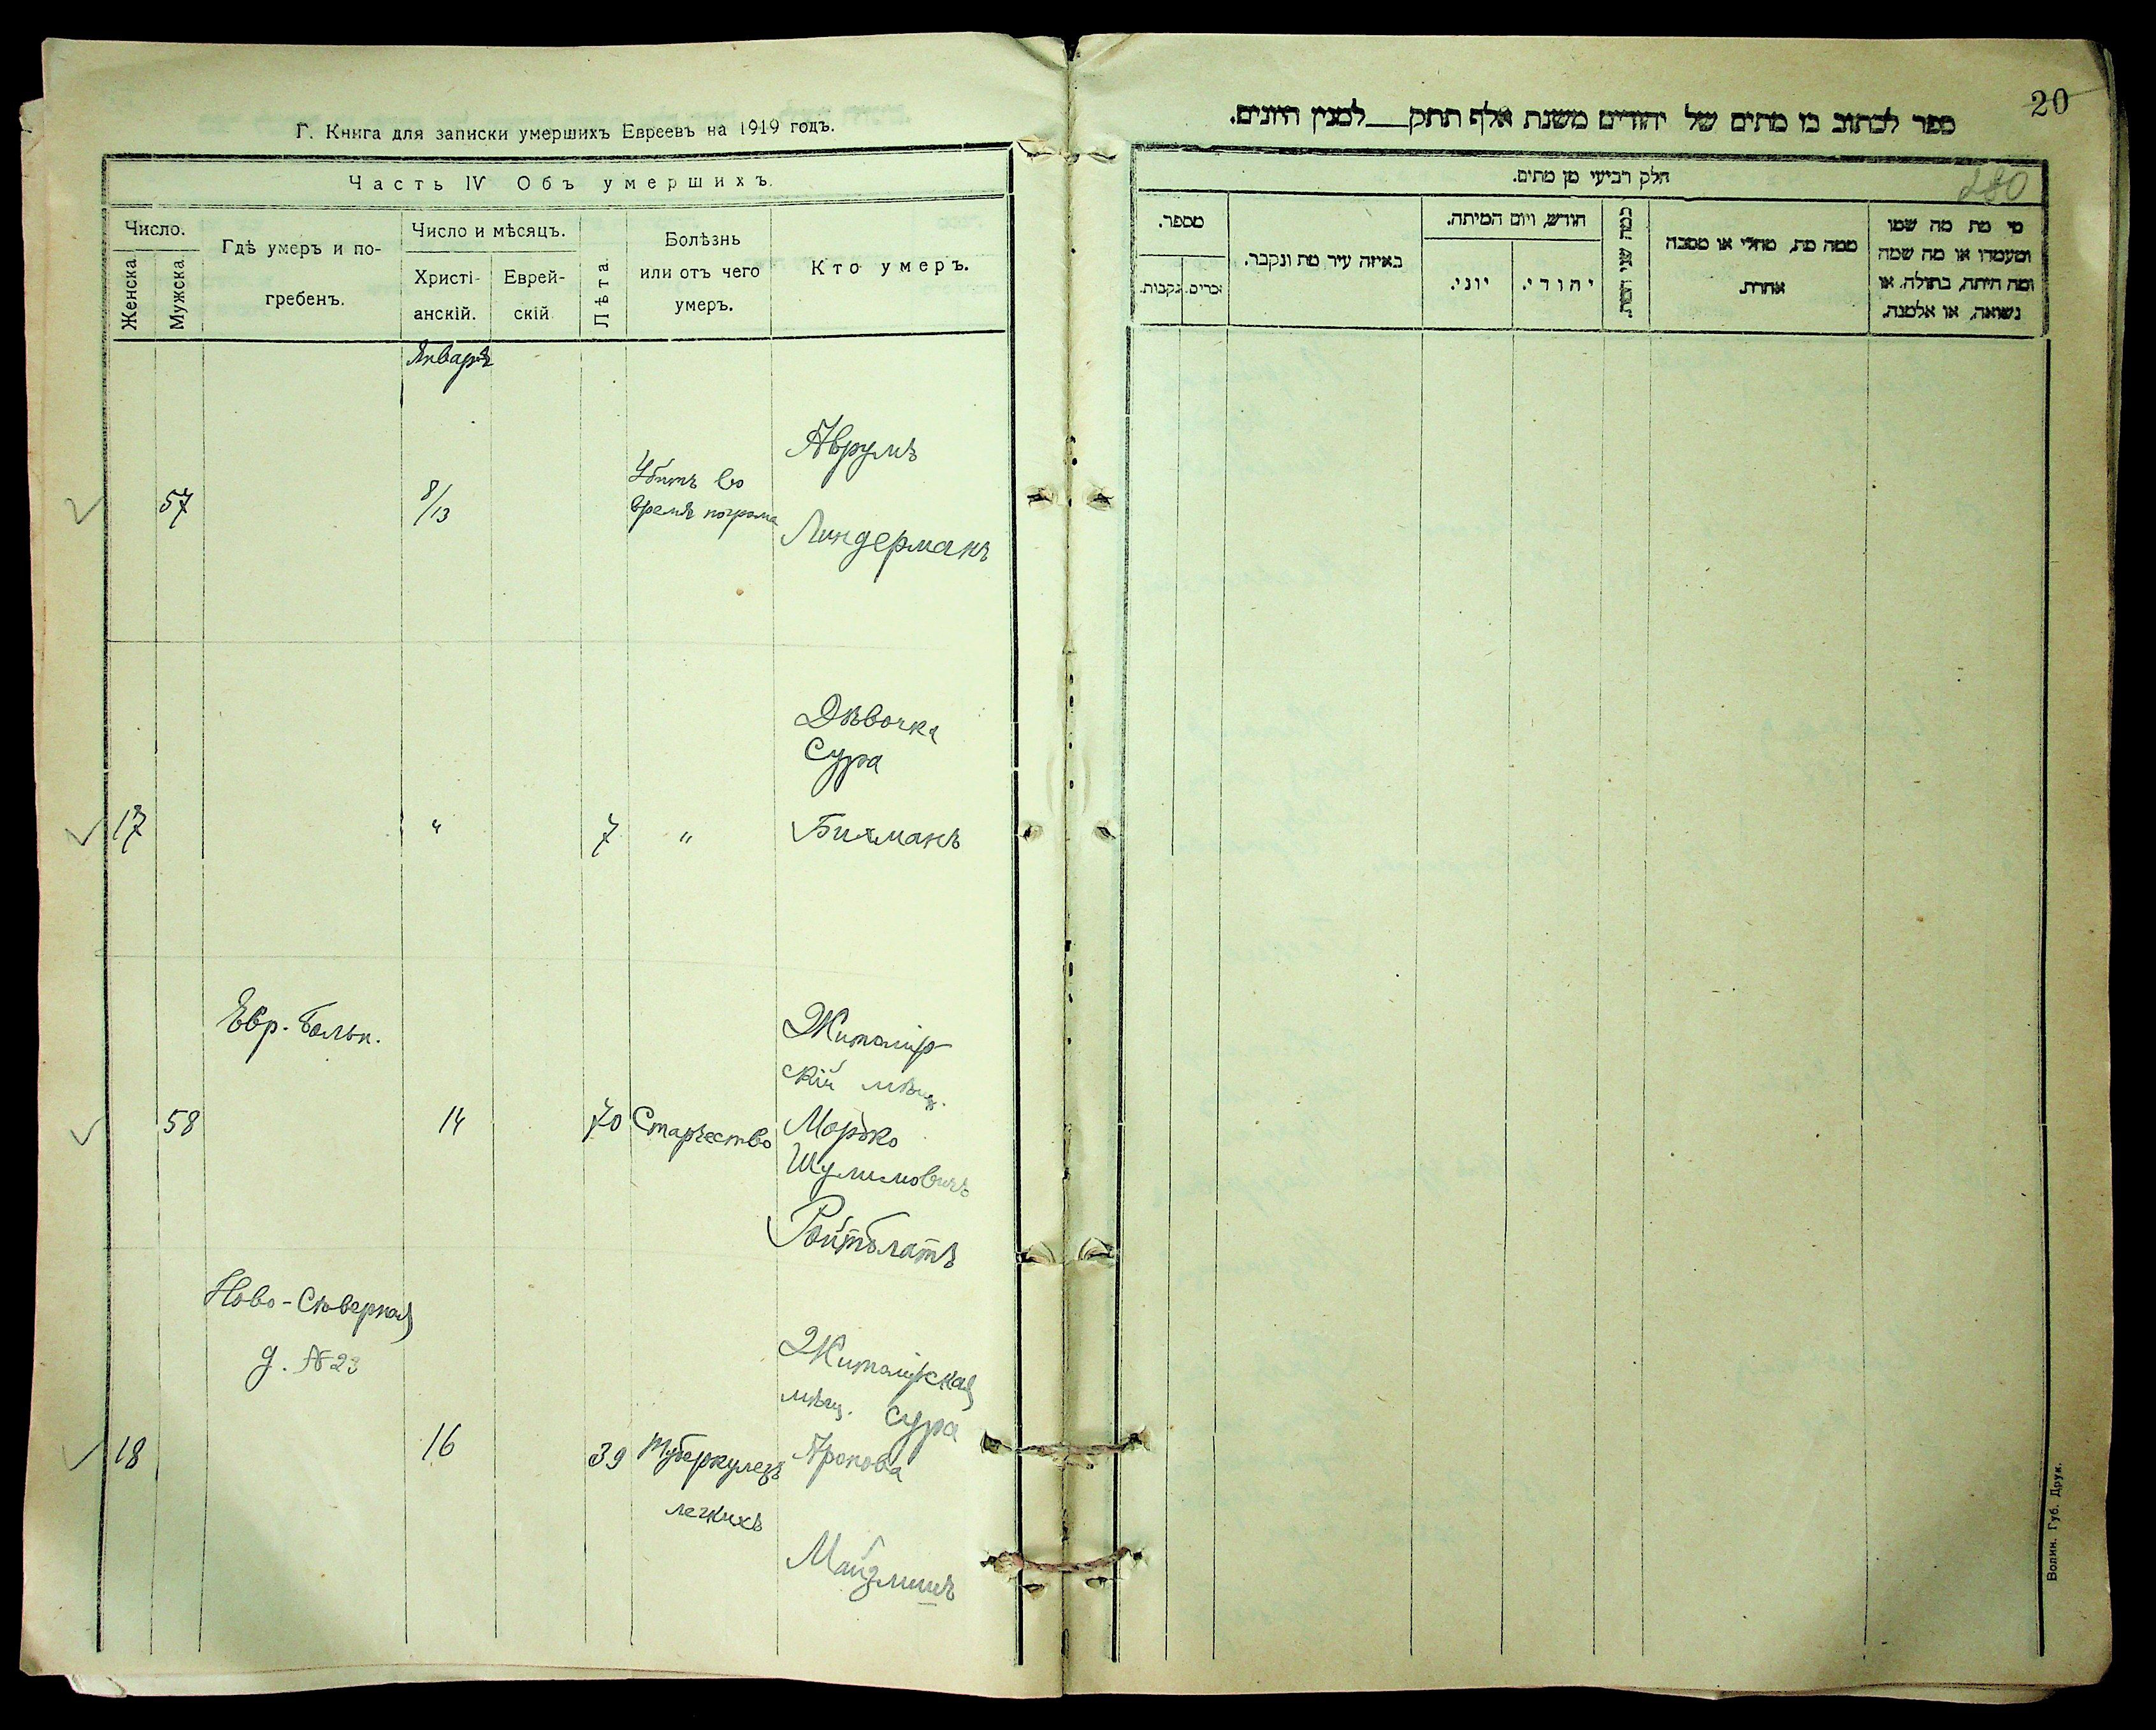 Г. Книга для записки умершихъ Евреевъ на 1919 годъ.
Часть IV Объ умершихъ.
Число.
Женска
Мужска
Гдѣ умеръ и по-
гребенъ.
Число и мѣсяцъ.
Христі-
анскій.
Еврей-
скій
Лѣта
Болѣзнь
или отъ чего
умеръ.
Кто умеръ.
Январь
57
8/13
Убитъ во
время погрома
Аврумъ
Линдерманъ
17
"
7
"
Дѣвочка
Сура
Бихманъ
Евр. больн.
58
14
70
Старчество
Житомір-
скій мѣщ.
Морько
Шулимовичъ
Ройтблатъ
Ново-Сѣверная
д. №23
18
16
39
Туберкулезъ
легкихъ
Житомірская
мѣщ. Сура
Аронова
Майзлишъ
20
ספר לכתוב בו מתים של יהודים משנת אלף תתק__למנין היונים.
חלק רביעי מן מתים.
280
מי מת מה שמו
ומעמדו או מה שמה
ומה היתה, בתולה. או
נשואה, או אלמנה.
ממה מת, מחלי או מסבה
אחרת.
כמה שני המת.
חודש, ויום המיתה.
יהודי.
יוני.
באיזה עיר מת ונקבר.
מספר.
זכרים.
נקבות.
Волин. Губ. Друк.